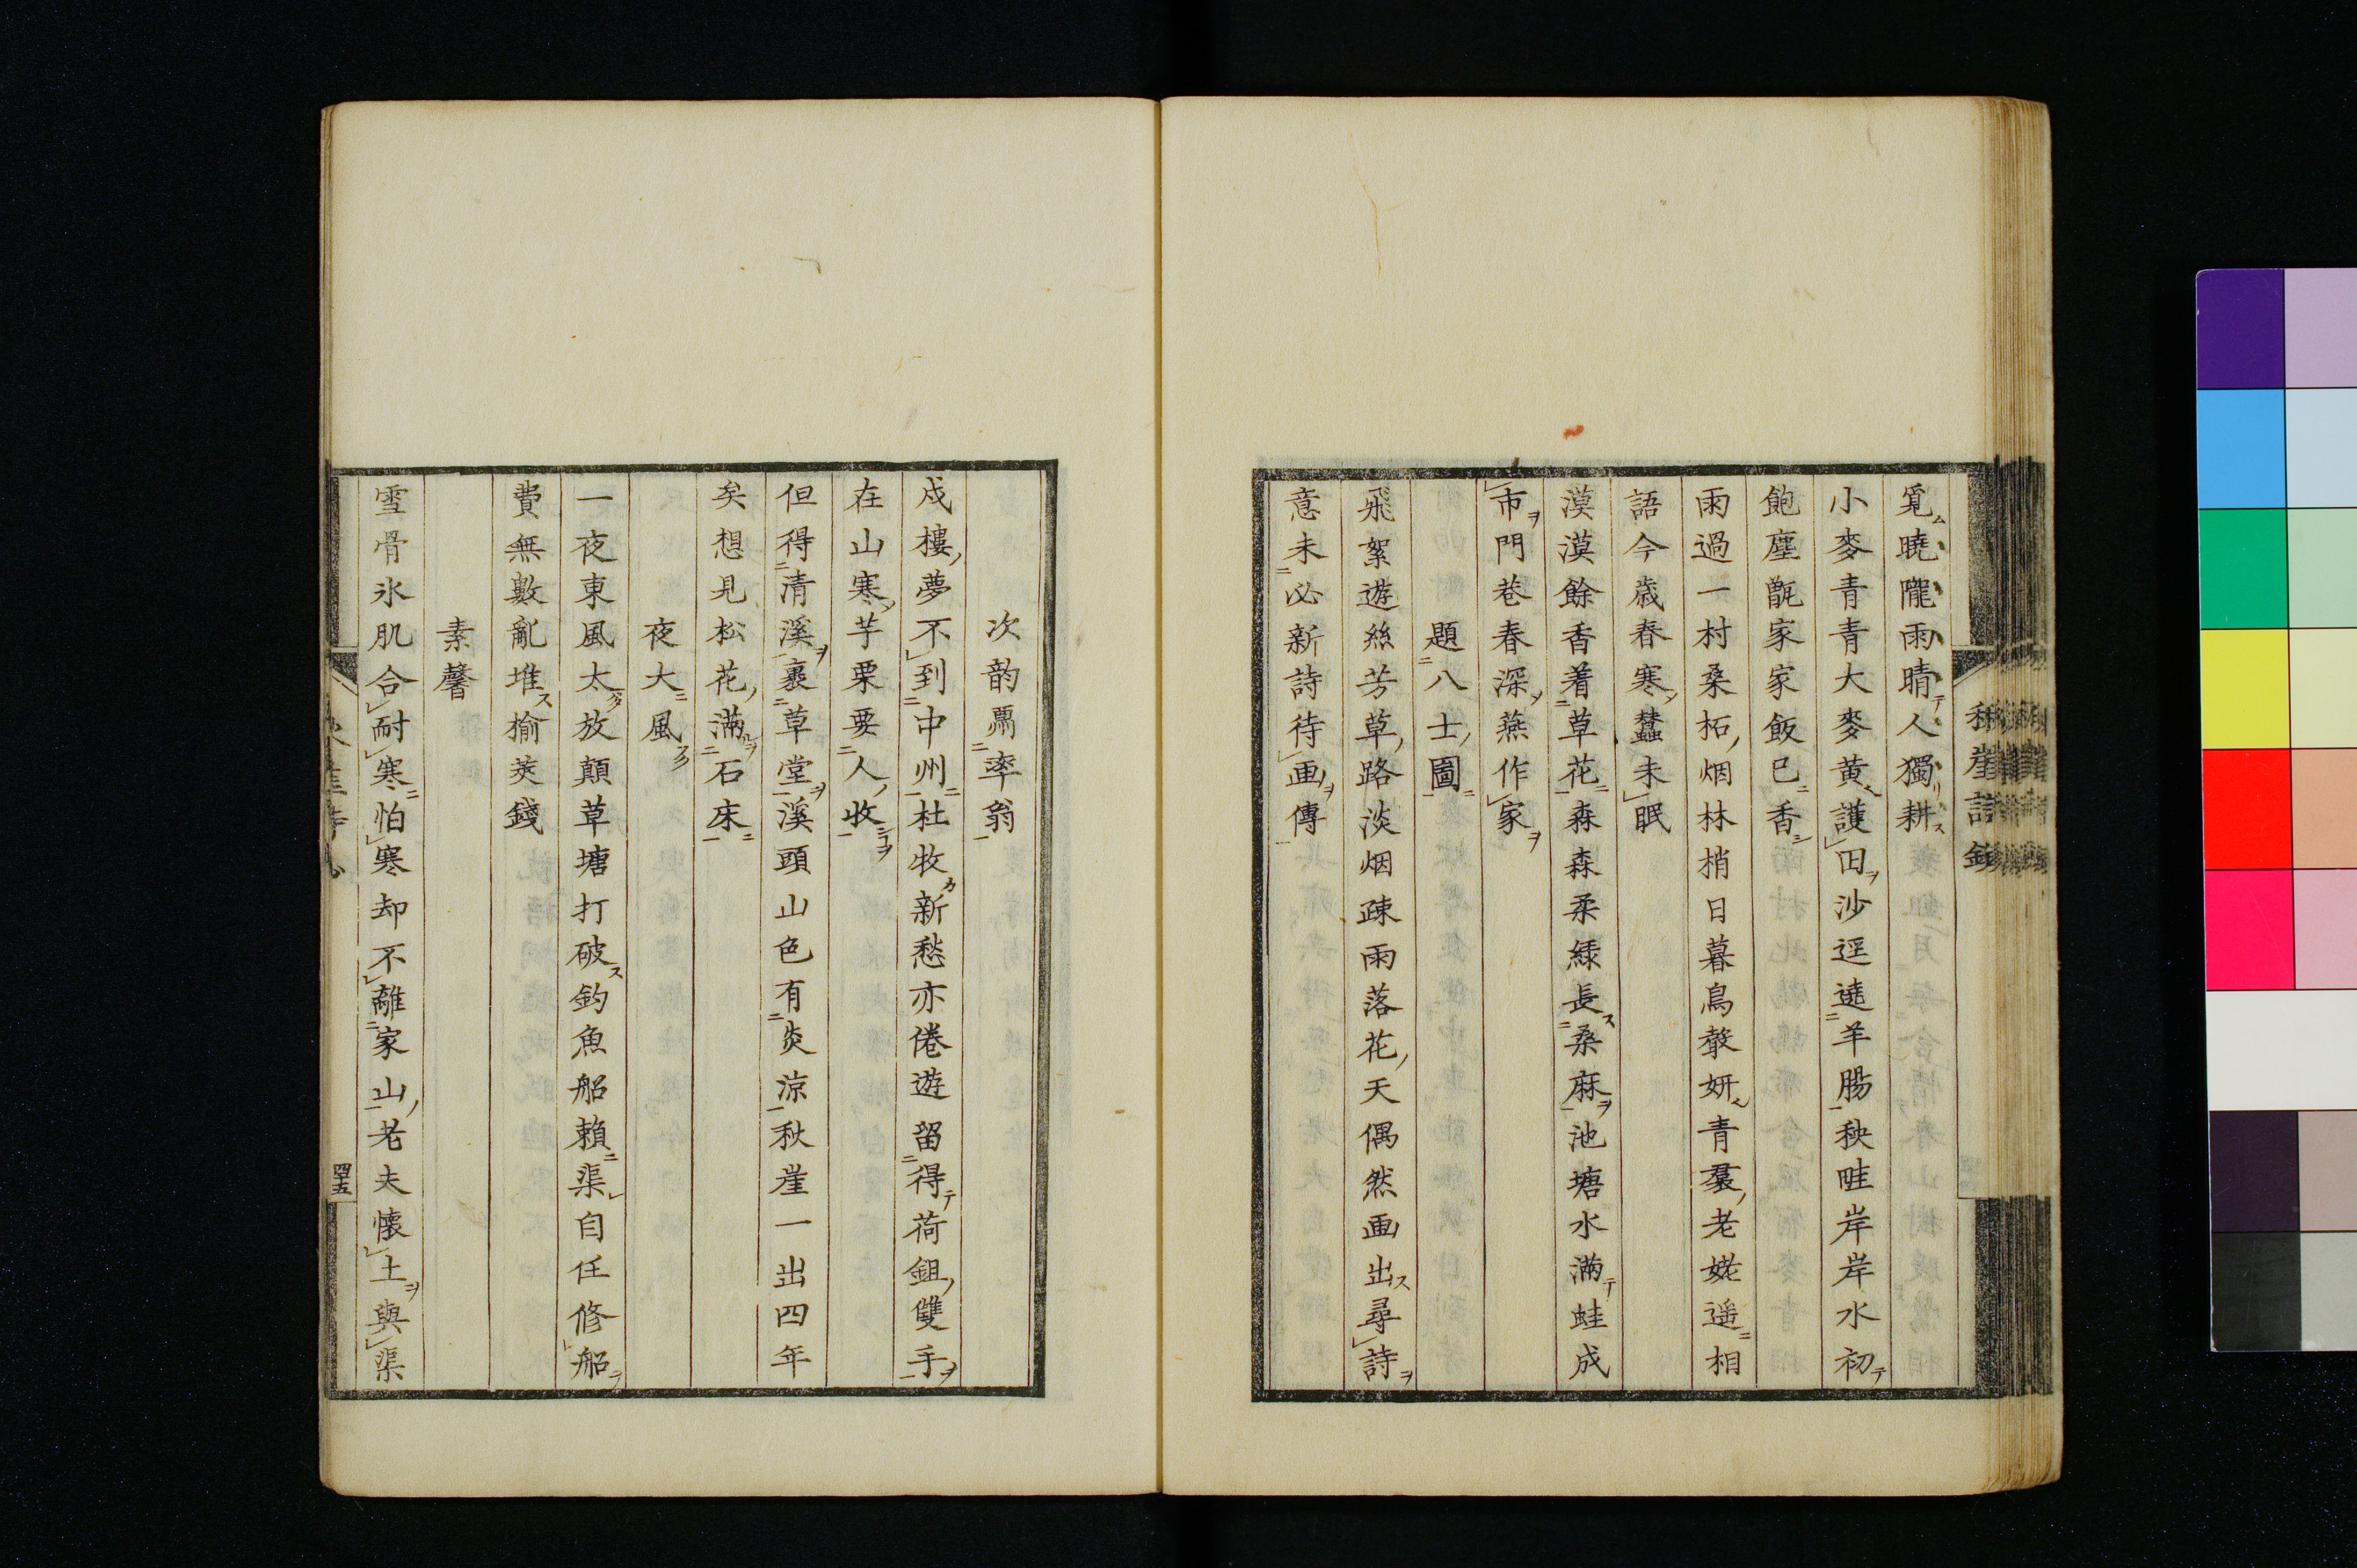 覔曉隴雨晴人獨耕
小麥青青大麥黄護田沙逕遶羊腸秧畦岸岸水初
飽塵甑家家飯已香
雨過一村桑柘烟林梢日暮鳥聲妍青裙老姥遥相
語今歳春寒蠶未眠
漠漠餘香着草花森森柔緑長桑麻池塘水滿蛙成
市門巷春深燕作家
題八士圖
飛絮遊絲芳草路淡烟疎雨落花天偶然画出尋詩
意未必新詩待画傳
次韵鄂渚翁
戍樓夢不到中州杜牧新愁亦倦遊留得荷鉏雙手
在山寒芋栗要人收
但得清溪裹草堂溪頭山色有炎涼秋崖一出四年
矣想見松花滿石床
夜大風
一夜東風太放顛草塘打破釣魚船賴渠自任修船
費無數亂堆榆莢錢
素馨
雪骨氷肌合耐寒怕寒却不離家山老夫懷土與渠
四十五